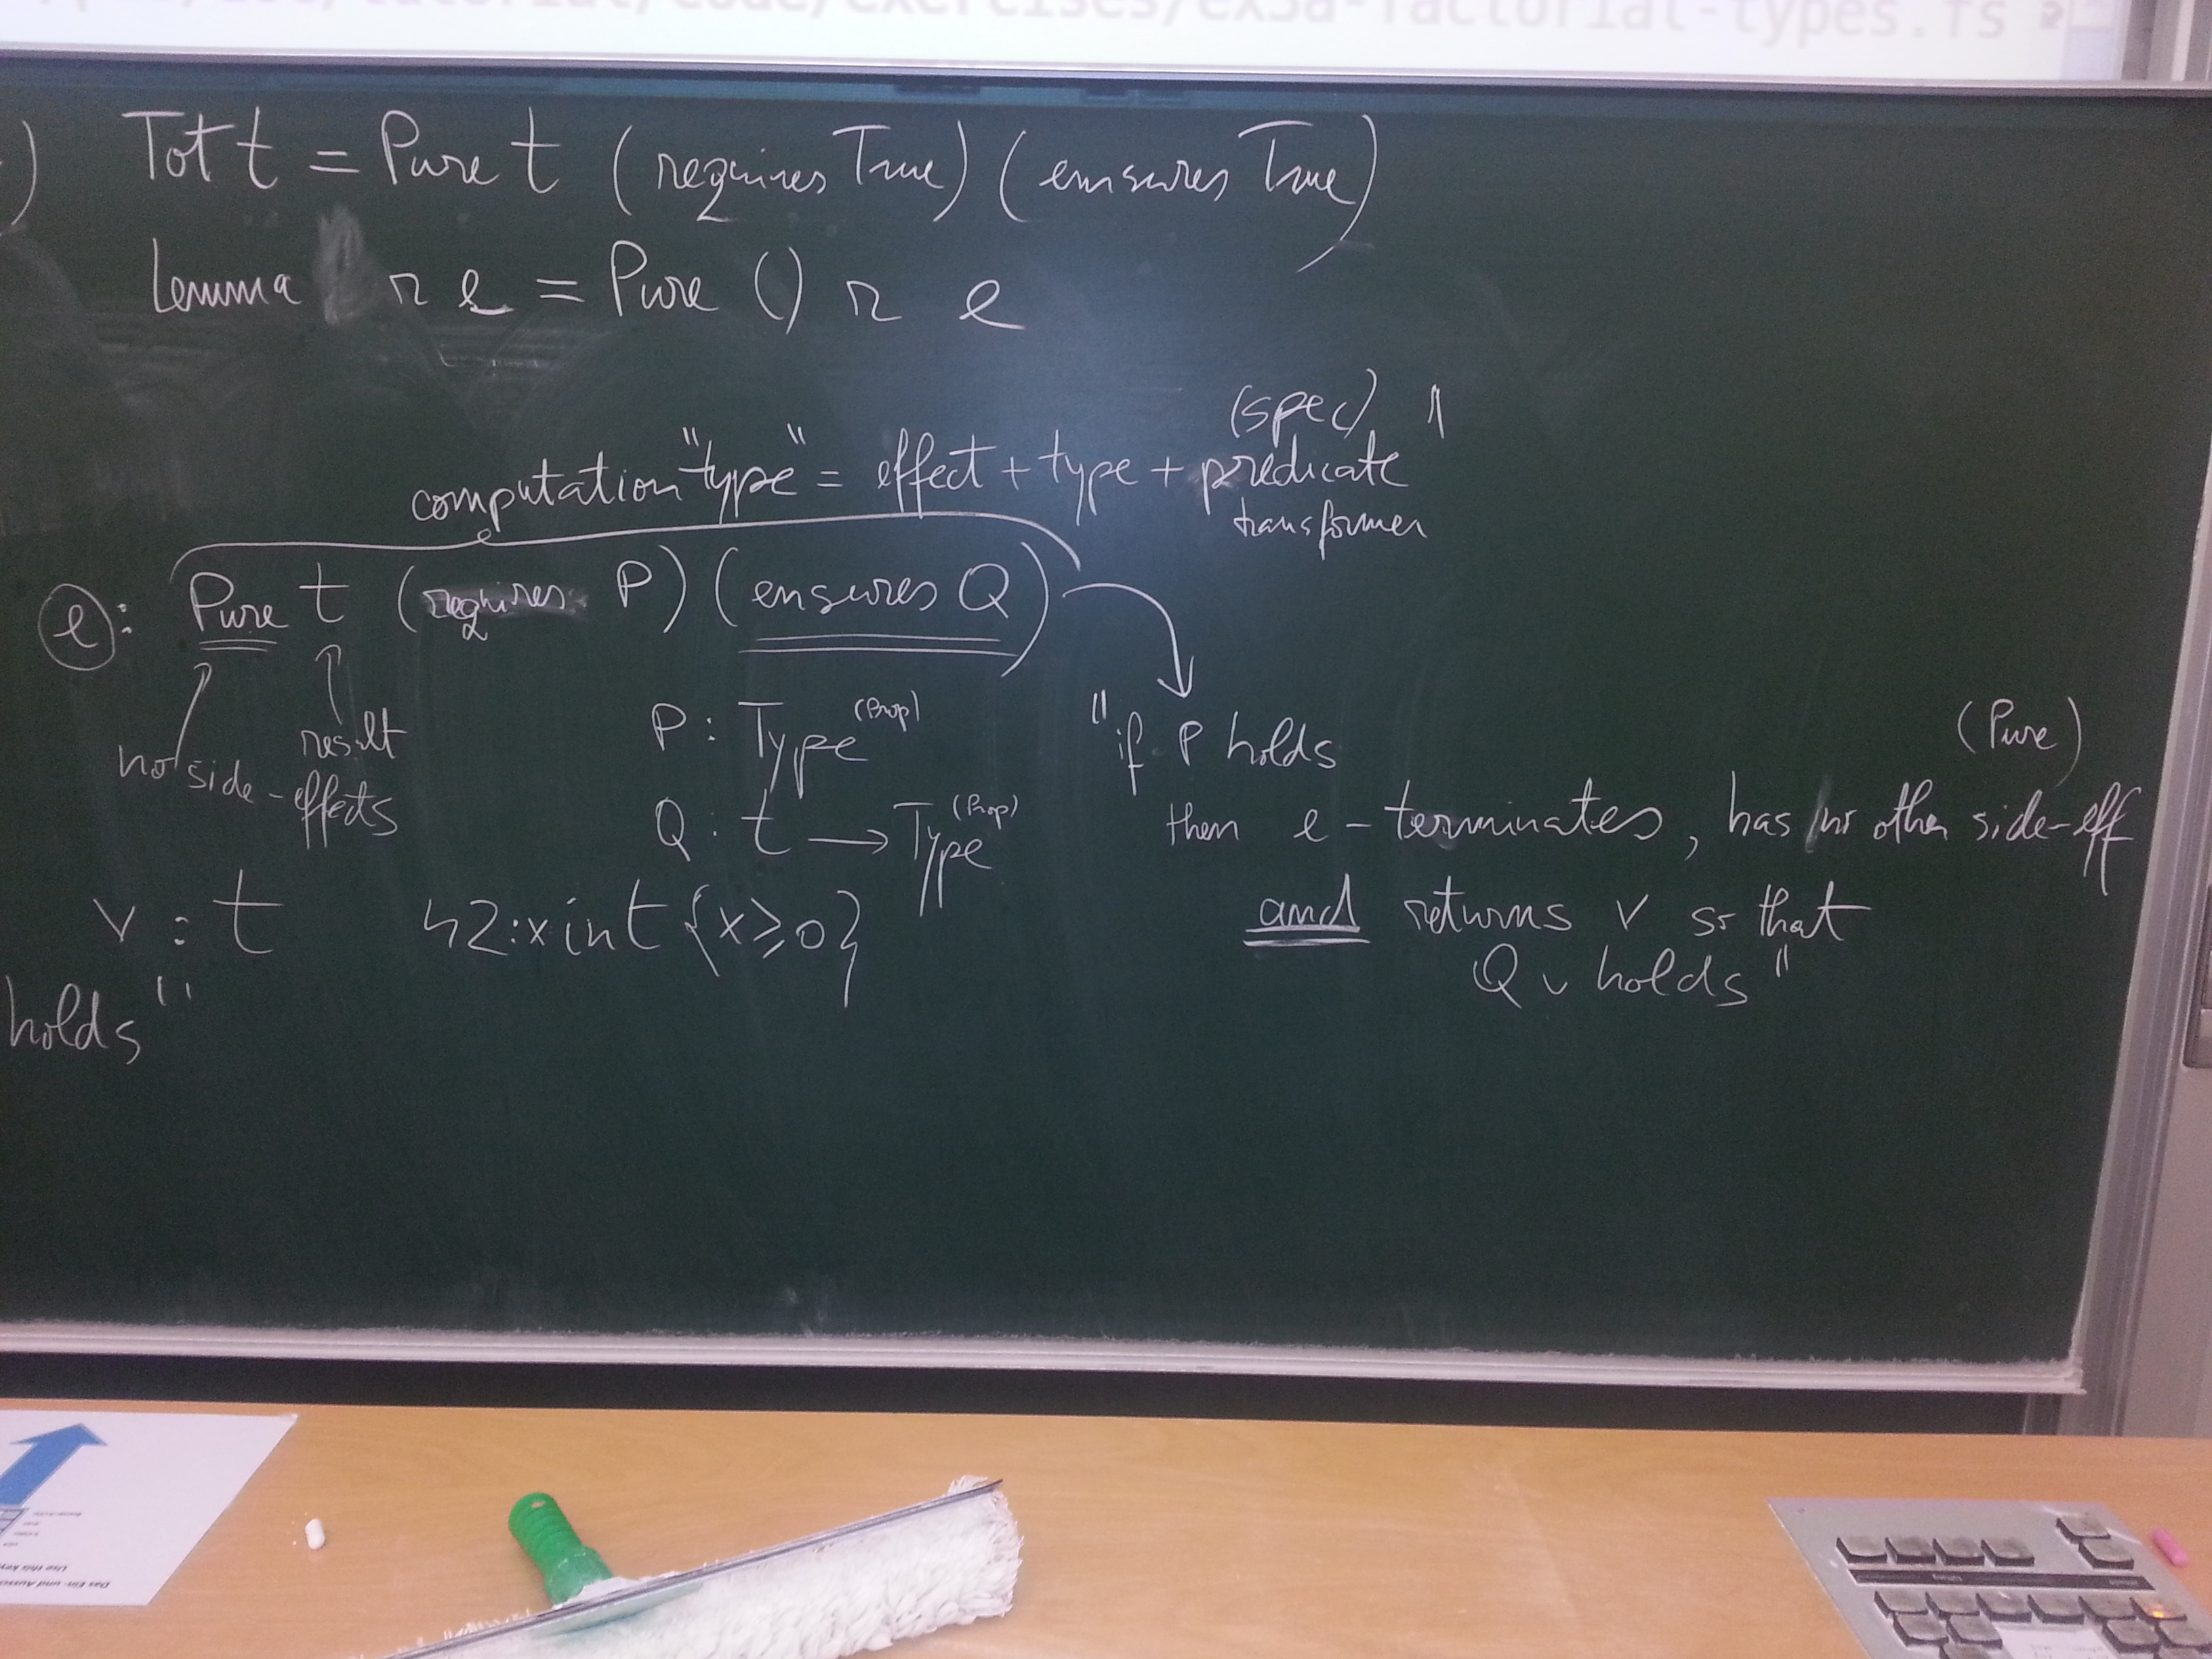 tutorial/code/exercises/ex3a-factorial-types.fs
) Tot t = Pure t (requires True) (ensures True)
Lemma r e = Pure () r e
(spec) "
computation "type" = effect + type + predicate
transformer
e : Pure t (requires P) (ensures Q)
no side-effects
result
P : Type (Prop)
Q : t → Type (Prop)
"if P holds
(Pure)
then e - terminates, has no other side-eff
and returns v so that
Q v holds"
v : t 42:x int {x ≥ 0}
holds"